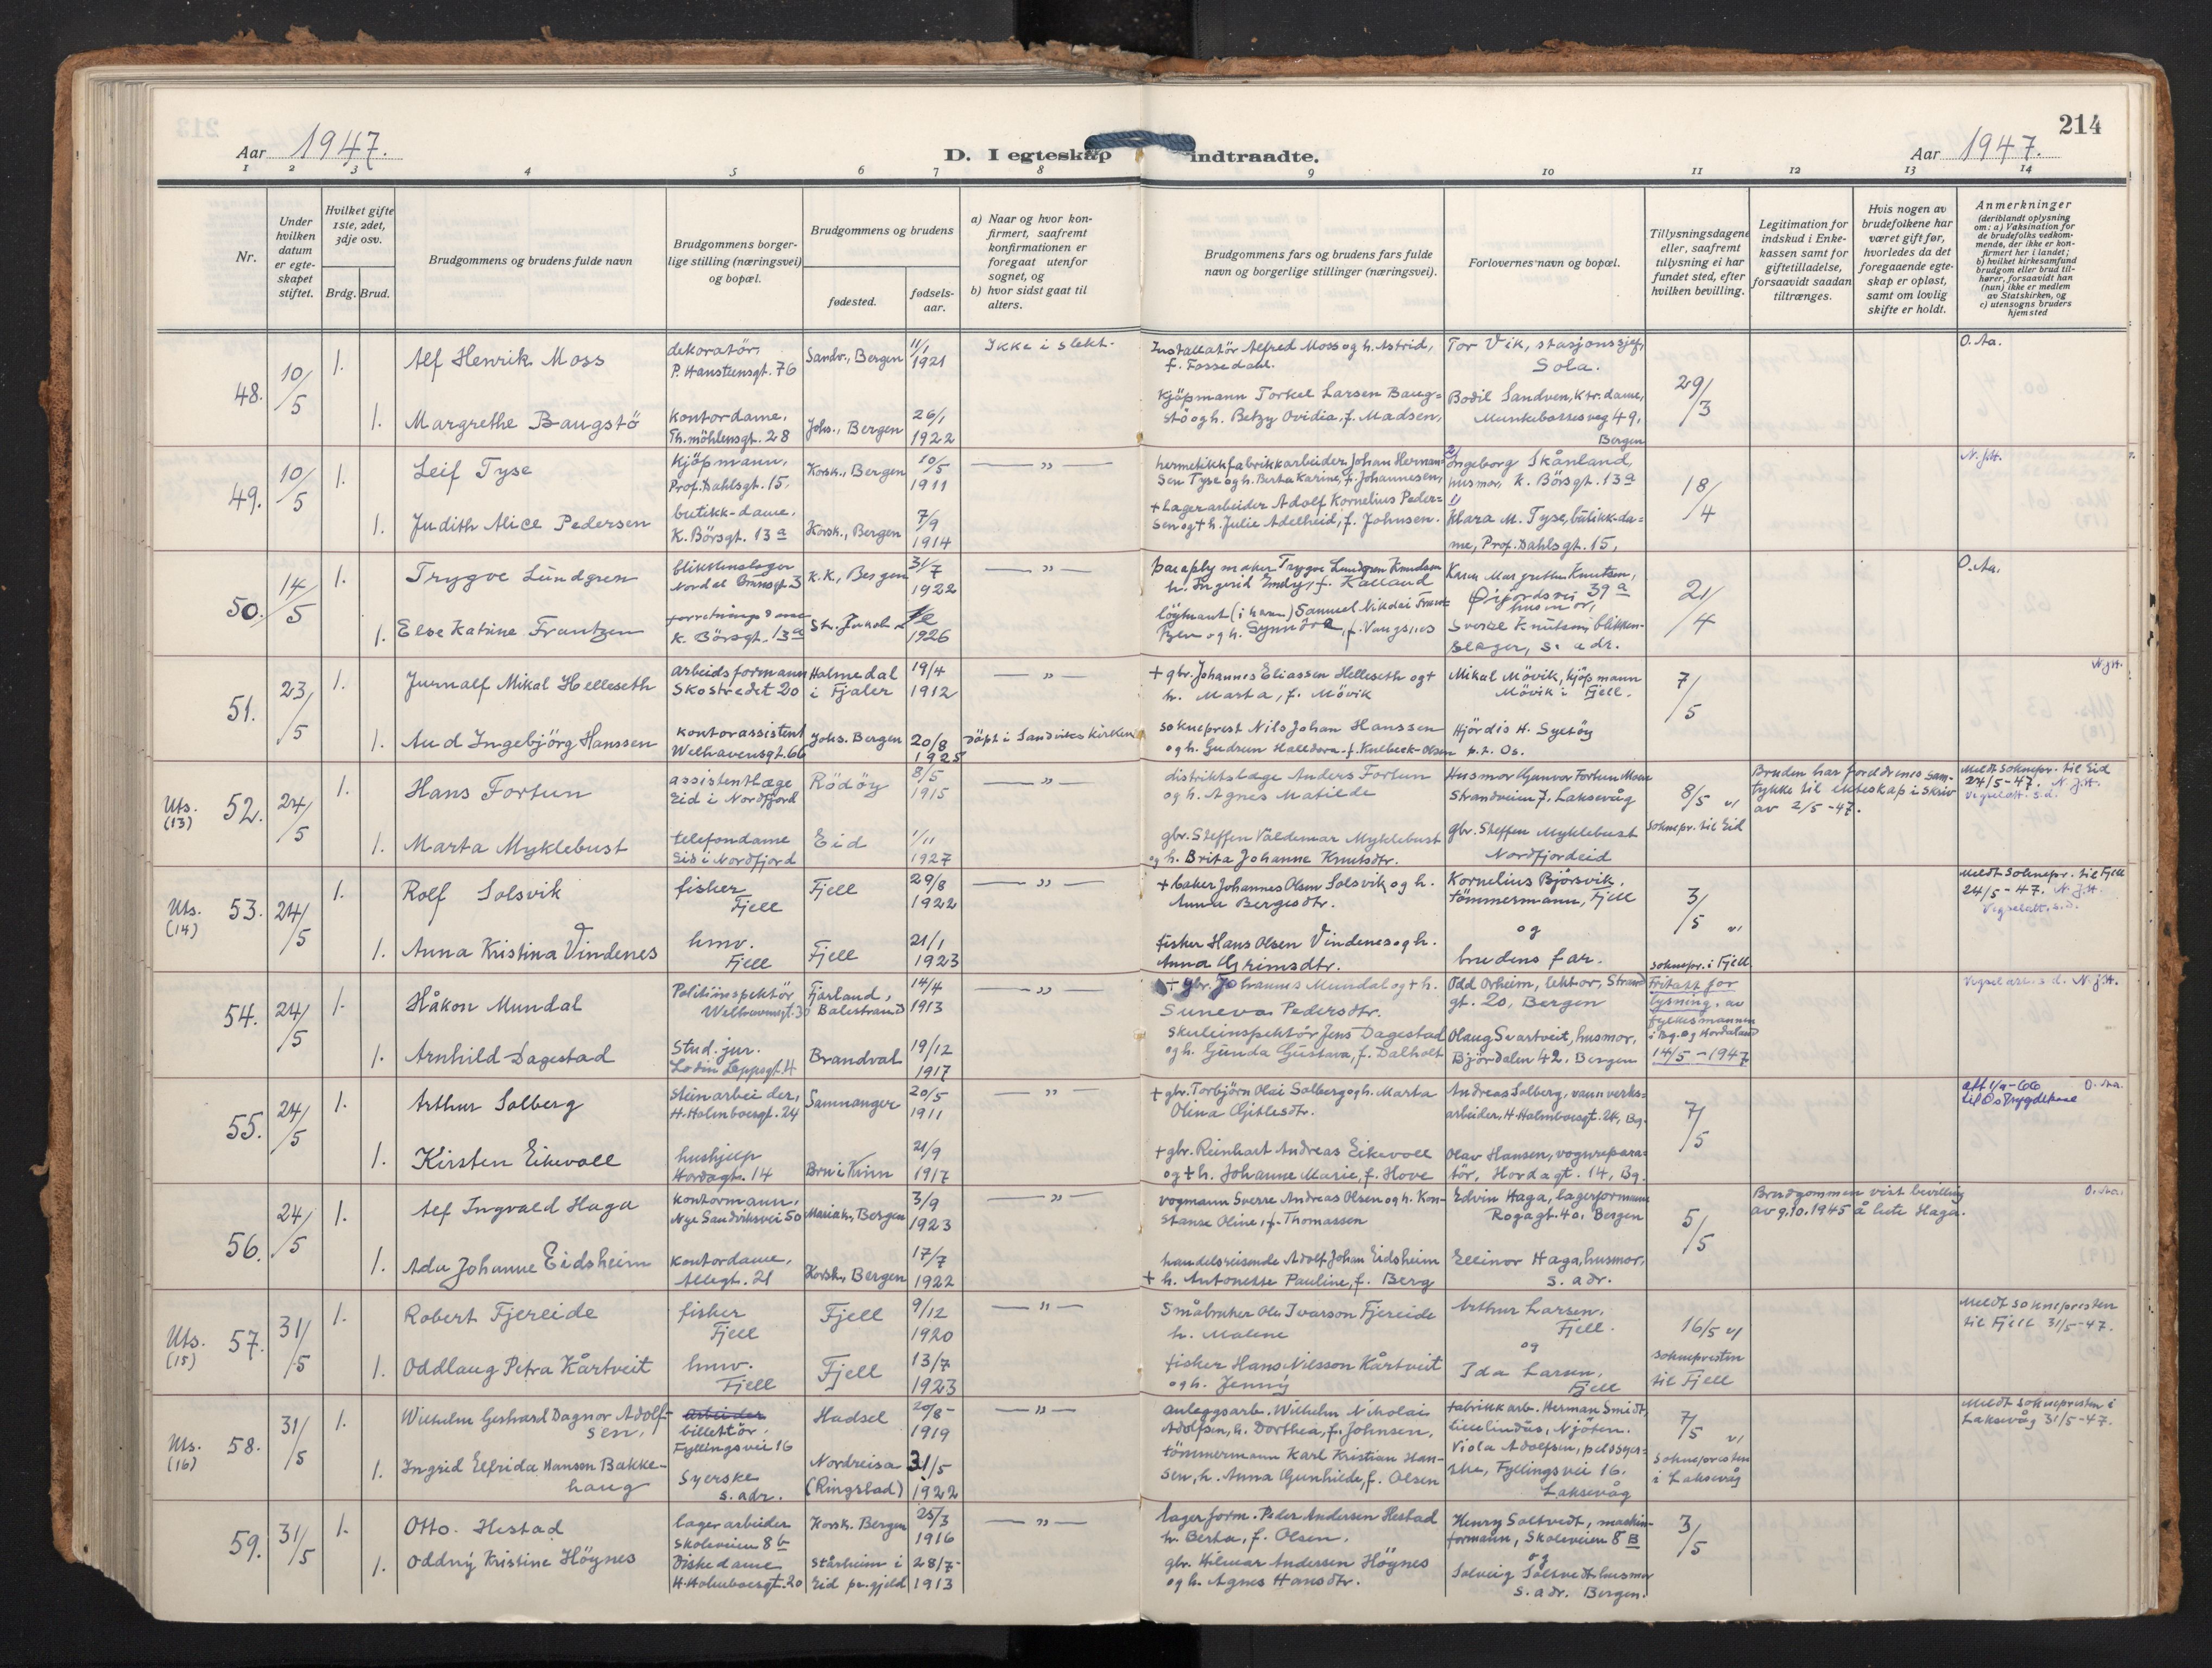 213
214
Aar 1947.
D. I egteskap indtraadte.
Aar 1947.
1 2 3 4 5 6 7 8 9 10 11 12 13 14
Nr.
Under hvilken datum er egteskapet stiftet.
Hvilket gifte 1ste, 2det, 3dje osv.
Brdg. Brud.
Brudgommens og brudens fulde navn
Brudgommens borgerlige stilling (næringsvei) og bopæl.
Brudgommens og brudens
fødested.
fødselsaar.
a) Naar og hvor konfirmert, saafremt konfirmationen er foregaat utenfor sognet, og
b) hvor sidst gaat til alters.
Brudgommens fars og brudens fars fulde navn og borgerlige stillinger (næringsvei).
Forlovernes navn og bopæl.
Tillysningsdagene eller, saafremt tillysning ei har fundet sted, efter hvilken bevilling.
Legitimation for indskud i Enkekassen samt for giftetilladelse, forsaavidt saadan tiltrænges.
Hvis nogen av brudefolkene har været gift før, hvorledes da det foregaaende egteskap er opløst, samt om lovlig skifte er holdt.
Anmerkninger
(deriblandt oplysning om: a) Vaksination for de brudefolks vedkommende, der ikke er konfirmert her i landet;
b) hvilket kirkesamfund brudgom eller brud tilhører, forsaavidt han (hun) ikke er medlem av Statskirken, og
c) utensogns bruders hjemsted
48. 10/5 1. Alf Henrik Moss
dekoratör, P. Hansteensgt. 76
Sandv., Bergen 11/1 1921
Ikke i slekt.
Installatör Alfred Moss og h. Astrid, f. Fossedahl.
Tor Vik, stasjonssjef, Sola.
29/3
O. Aa.
1. Margrethe Baugstö
kontordame, Th. möhlensgt. 28
Johs., Bergen 26/1 1922
Kjöpmann Torkel Larsen Baugstö og h. Betzy Ovidia, f. Madsen,
Bodil Sandven, ktr. dame, Munkebotsveg 49, Bergen
49. 10/5 1. Leif Tyse
kjöpmann, Prof. Dahlsgt. 15,
Korsk., Bergen 10/5 1911
— " —
hermetikkfabrikkarbeider Johan Hermansen Tyse og h. Berta Karine, f. Johannesen,
Ingeborg Skånland, husmor, K. Börsgt. 13a
18/4
N. J. H.
1. Judith Alice Pedersen
butikk-dame. K. Börsgt. 13a
Korsk., Bergen 7/9 1914
+ Lagerarbeider Adolf Kornelius Pedersen og + h. Julie Adelheid, f. Johnsen.
Klara M. Tyse, butikk-dame, Prof. Dahlsgt. 15,
50. 14/5 1. Trygve Lundgren
blikkenslager Nordal Brunsgt. 3
K. K., Bergen 31/7 1922
— " —
paraplymaker Trygve Lundgren Knudsen h. Ingerid Emdy, f. Kalland
Karen Margrethe Knutsen, Øifjordsvei 39a husmor,
21/4
O. Aa.
1. Else Katrine Frantzen
K. Börsgt. 13a
St. Jakob 1926
löytnant (i hæren) Samuel Nikolai Frantzen og h. Synnöve, f. Vangsnes
Sverre Knutsen, blikkenslager, s. adr.
51. 23/5 1. Jurnalf Mikal Helleseth
arbeidsformann Skostredet 20
Holmedal i Fjaler 19/4 1912
— " —
+ gbr. Johannes Eliassen Helleseth og + h. Marta, f. Mövik
Mikal Mövik, kjöpmann Mövik i Fjell.
7/5
N. J. H.
1. Aud Ingebjörg Hanssen
kontorassistent Welhavensgt. 66
Johs. Bergen 20/8 1925
Döpt i Sandvikskirken
sokneprest Nils Johan Hanssen og h. Gudrun Halldora, f. Kulbeck-Olsen
Hjördis H. Syltöy p.t. Os.
Uts. (13) 52. 24/5 1. Hans Fortun
assistentlæge Eid i Nordfjord
Rödöy 8/5 1915
— " —
distriktslæge Anders Fortun og h. Agnes Matilde
Husmor Gunvor Fortun Mose Strandveien 7, Laksevåg
8/5 v/ soknepr. til Eid
Bruden har foreldrenes samtykke til ekteskap i skriv av 2/5-47.
Meldt soknepr. til Eid 24/5-47. N. J. H. Vigselatt. s.d.
1. Marta Myklebust
telefondame Eid i Nordfjord
Eid 1/11 1927
gbr. Steffen Valdemar Myklebust og h. Brita Johanne Knutsdtr.
gbr. Steffen Myklebust Nordfjordeid
Uts. (14) 53. 24/5 1. Rolf Solsvik
fisker Fjell
Fjell 29/8 1922
— " —
+ baker Johannes Olsen Solsvik og h. Anna Bergesdtr.
Kornelius Bjørsvik, tömmermann, Fjell
3/5 v/ soknepr. i Fjell
Meldt soknepr. til Fjell 24/5-47. N. J. H. Vigselatt. s.d.
1. Anna Kristina Vindenes
hmv. Fjell
Fjell 21/1 1923
fisker Hans Olsen Vindenes og h. Anna Grimsdtr.
og brudens far.
54. 24/5 1. Håkon Mundal
Politiinspektör Welhavensgt. 30
Fjærland, Balestrand 14/4 1913
— " —
+ gbr. Johannes Mundal og + h. Suneva Pedersdtr.
Odd Orheim, lektor, Strandgt. 20, Bergen
Fritatt for lysning, av fylkesmannen i Bg. og Hordaland 14/5-1947
Vigselatt. s.d. N. J. H.
1. Arnhild Dagestad
Stud. jur. Lodin Leppsgt. 4
Brandval 19/12 1917
Skuleinspektör Jens Dagestad og h. Gunda Gustava, f. Dalholt
Olaug Svartveit, husmor, Björndalen 42, Bergen
55. 24/5 1. Arthur Solberg
Steinarbeider, H. Holmboesgt. 24
Samnanger 20/5 1911
— " —
+ gbr. Torbjörn Olai Solberg og h. Marta Olina Gitlesdtr.
Andreas Solberg, vannverksarbeider, H. Holmboesgt. 24, Bg.
7/5
att 1/9-66 til Os Trygdekasse O. Aa.
1. Kirsten Eikevoll
hushjelp Hordagt. 14
Bru i Kinn 21/9 1917
+ gbr. Reinhart Andreas Eikevoll og + h. Johanne Marie, f. Hove
Olav Hansen, vognreparatör, Hordagt. 14, Bg.
56. 24/5 1. Alf Ingvald Haga
kontormann, Nye Sandviksvei 50
Mariak., Bergen 3/9 1923
— " —
vogmann Sverre Andreas Olsen og h. Konstanse Oline, f. Thomassen
Edvin Haga, lagerformann Rogagt. 40, Bergen
5/5
Brudgommen vist bevilling av 9.10.1945 å hete Haga.
O. Aa.
1. Ada Johanne Eidsheim
kontordame, Allegt. 21
Korsk., Bergen 17/7 1922
handelsreisende Adolf Johan Eidsheim + h. Antonette Pauline, f. Berg
Ellinor Haga, husmor, s. adr.
Uts. (15) 57. 31/5 1. Robert Fjereide
fisker Fjell
Fjell 9/12 1920
— " —
Småbruker Ole Ivarson Fjereide h. Malene
Arthur Larsen, Fjell.
16/5 v/ soknepresten til Fjell
Meldt soknepresten til Fjell 31/5-47.
1. Oddlaug Petra Kårtveit
hmv. Fjell
Fjell 13/7 1923
fisker Hans Nilsson Kårtveit og h. Jenny
og Ida Larsen, Fjell
Uts. (16) 58. 31/5 1. Wilhelm Gerhard Dagnor Adolfsen,
arbeider billettör. Fyllingsvei 16
Hadsel 20/8- 1919
— " —
anleggsarb. Wilhelm Nikolai Adolfsen, h. Dorthea, f. Johnsen,
fabrikkarb. Herman Smidt, Lillelindås, Njöten.
7/5 v/ soknepresten i Laksevåg
Meldt soknepresten i Laksevåg 31/5-47.
1. Ingrid Elfrida Hansen Bakkehaug
Syerske s. adr.
Nordreisa (Ringstad) 31/5 1922
tömmermann Karl Kristian Hansen, h. Anna Gunhilde, f. Olsen
Viola Adolfsen, pelssyerske, Fyllingsvei 16. Laksevåg
59. 31/5 1. Otto Hestad
lagerarbeider Skoleveien 8b
Korsk. Bergen 25/3 1916
— " —
Lagerform. Peder Andersen Hestad h. Berta, f. Olsen,
Henry Soltvedt, maskinformann, Skoleveien 8B
3/5
1. Oddny Kristine Höynes
Diskedame H. Holmboesgt. 20
Stårheim i Eid pr.gjeld 28/7- 1913
gbr. Hilmar Andersen Höynes og h. Agnes Hansdtr.
og Solveig Soltvedt husmor s. adr. Bergen.